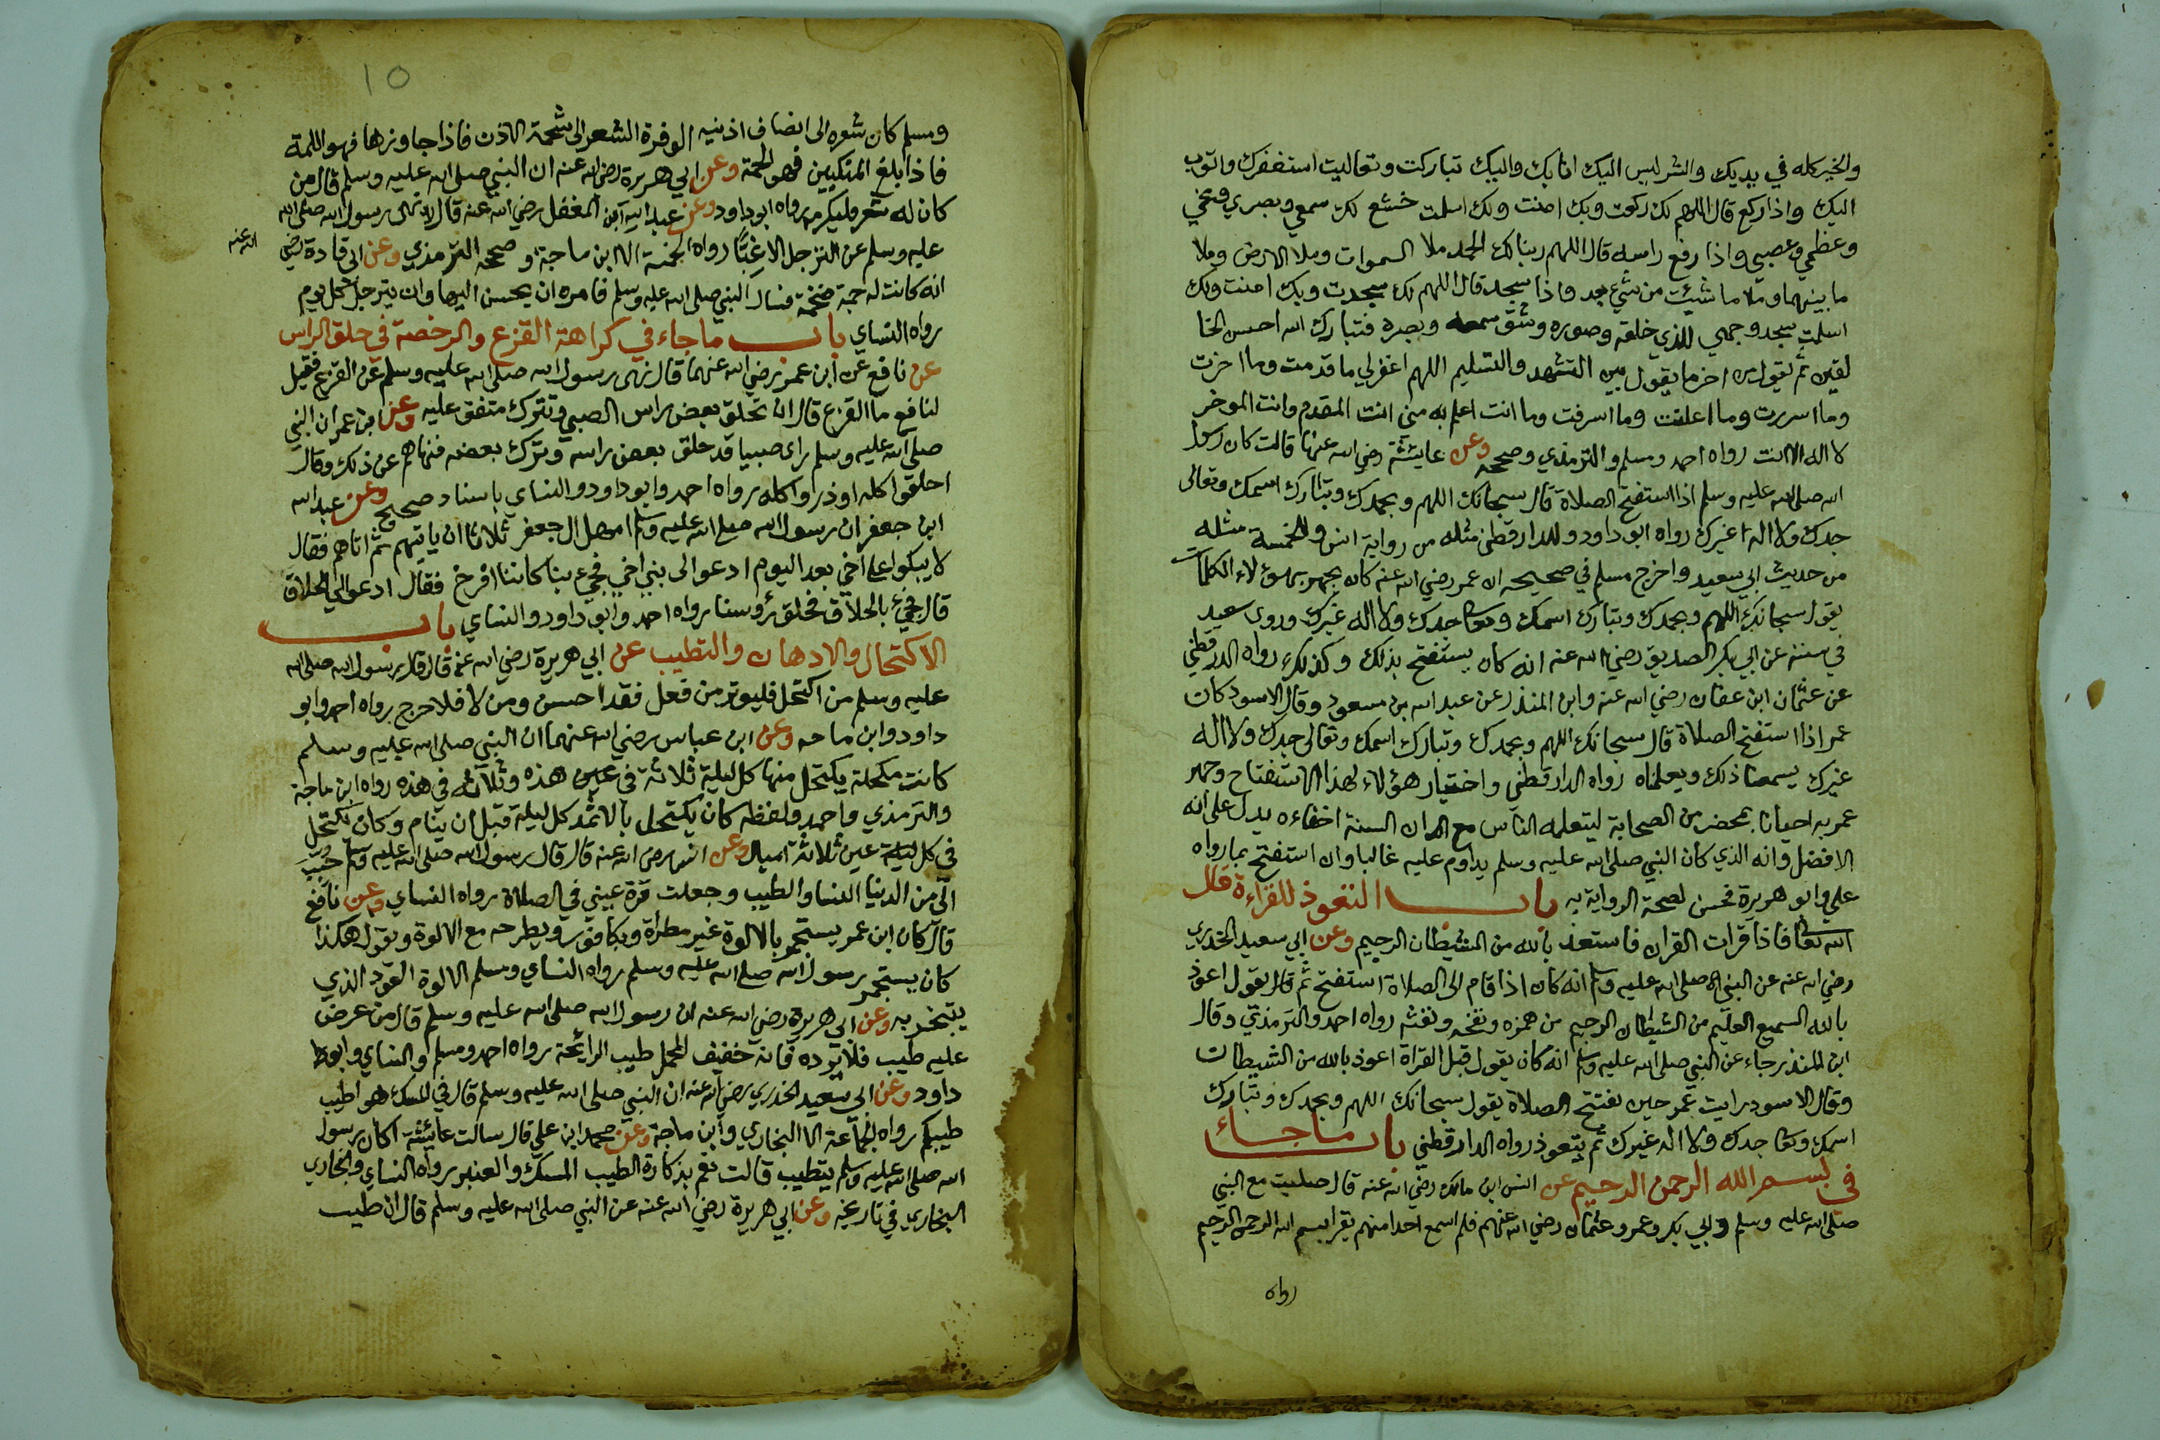 والخير كله في يديك والشر ليس اليك انا بك واليك تباركت وتعاليت استغفرك واتوب
اليك واذا ركع قال اللهم لك ركعت وبك امنت ولك اسلمت خشع لك سمعي وبصري ومخي
وعظمي وعصبي واذا رفع راسه قال اللهم ربنا لك الحمد ملا السموات وملا الارض وملا
ما بينهما وملا ما شئت من شيء بعد واذا سجد قال اللهم لك سجدت وبك امنت ولك
اسلمت سجد وجهي للذي خلقه وصوره وشق سمعه وبصره فتبارك الله احسن الخا
لقين ثم يقول من اخر ما يقول بين التشهد والتسليم اللهم اغفر لي ما قدمت وما اخرت
وما اسررت وما اعلنت وما اسرفت وما انت اعلم به مني انت المقدم وانت الموخر
لا اله الا انت رواه احمد ومسلم والترمذي وصححه وعن عايشة رضي الله عنها قالت كان رسول
الله صلى الله عليه وسلم اذا استفتح الصلاة قال سبحانك اللهم وبحمدك وتبارك اسمك وتعالى
جدك ولا اله غيرك رواه ابو داود وللدارقطني مثله من رواية انس وللخمسة مثله
من حديث ابي سعيد واخرج مسلم في صحيحه ان عمر رضي الله عنه كان يجهر بهولاء الكلمات
يقول سبحانك اللهم وبحمدك وتبارك اسمك وتعا جدك ولا اله غيرك وروى سعيد
في سننه عن ابي بكر الصديق رضي الله عنه انه كان يستفتح بذلك وكذلك رواه الدارقطني
عن عثمان ابن عفان رضي الله عنه وابن المنذر عن عبد الله بن مسعود وقال الاسود كان
عمر اذا استفتح الصلاة قال سبحانك اللهم وبحمدك وتبارك اسمك وتعالى جدك ولا اله
غيرك يسمعنا ذلك ويعلمناه رواه الدارقطني واختيار هولاء لهذا الاستفتاح وجهر
عمر به احيانا بمحضر من الصحابة ليتعلمه الناس مع ان السنة اخفاءه يدل على انه
الافضل وانه الذي كان النبي صلى الله عليه وسلم يداوم عليه غالبا وان استفتح بما رواه
علي وابو هريرة فحسن لصحة الرواية به باب التعوذ للقراءة قال
الله تعا فاذا قرات القران فاستعذ بالله من الشيطان الرجيم وعن ابي سعيد الخدري
رضي الله عنه عن النبي صلى الله عليه وسلم انه كان اذا قام الى الصلاة استفتح ثم قال يقول اعوذ
بالله السميع العليم من الشيطان الرجيم من همزه ونفخه ونفثه رواه احمد والترمذي وقال
ابن المنذر جاء عن النبي صلى الله عليه وسلم انه كان يقول قبل القراة اعوذ بالله من الشيطان
وقال الاسود رايت عمر حين يفتتح الصلاة يقول سبحانك اللهم وبحمدك وتبارك
اسمك وتعا جدك ولا اله غيرك ثم يتعوذ رواه الدارقطني باب ما جاء
في بسم الله الرحمن الرحيم عن انس ابن مالك رضي الله عنه قال صليت مع النبي
صلى الله عليه وسلم وابي بكر وعمر وعثمان رضي الله عنهم فلم اسمع احدا منهم يقرا بسم الله الرحمن الرحيم
رواه
١٥
ومسلم كان شعره الى انصاف اذنيه الوفرة الشعر الى شحمة الاذن فاذا جاوزها فهو اللمة
فاذا بلغ المنكبين فهو الجمة وعن ابي هريرة رضي الله عنه ان النبي صلى الله عليه وسلم قال من
كان له شعر فليكرمه رواه ابو داود وعن عبد الله ابن المغفل رضي الله عنه قال نهى رسول الله صلى الله
عليه وسلم عن الترجل الا غبًّا رواه الخمسة الا ابن ماجة وصححه الترمذي وعن ابي قتادة رضي
الله عنه
انه كانت له جمة ضخمة فسال النبي صلى الله عليه وسلم فامره ان يحسن اليها وان يترجل كل يوم
رواه النساي باب ما جاء في كراهة القزع والرخصة في حلق الراس
عن نافع عن ابن عمر رضي الله عنهما قال نهى رسول الله صلى الله عليه وسلم عن القزع فقيل
لنافع ما القزع قال ان يحلق بعض راس الصبي وتترك متفق عليه وعن ابن عمر ان النبي
صلى الله عليه وسلم راى صبيا قد حلق بعض راسه وترك بعضه فنهاهم عن ذلك وقال
احلقوا كله او ذروا كله رواه احمد وابو داود والنساي باسناد صحيح وعن عبد الله
ابن جعفر ان رسول الله صلى الله عليه وسلم امهل ال جعفر ثلاثا ان ياتيهم ثم اتاهم فقال
لا تبكوا على اخي بعد اليوم ادعو الى بني اخي فجيء بنا كاننا افرخ فقال ادعو الي الحلاق
قال فجيء بالحلاق فحلق رؤوسنا رواه احمد وابو داود والنساي باب
الاكتحال والادهان والتطيب عن ابي هريرة رضي الله عنه قال قال رسول الله صلى الله
عليه وسلم من اكتحل فليوتر من فعل فقد احسن ومن لا فلا حرج رواه احمد وابو
داود وابن ماجه وعن ابن عباس رضي الله عنهما ان النبي صلى الله عليه وسلم
كانت مكحلة يكتحل منها كل ليلة ثلاثة في عين هذه وثلاثة في هذه رواه ابن ماجة
والترمذي واحمد ولفظه كان يكتحل بالاثمد كل ليلة قبل ان ينام وكان يكتحل
في كل ليلة عين ثلاثة اميال وعن انس رضي الله عنه قال قال رسول الله صلى الله عليه وسلم حبب
الي من الدنيا النسا والطيب وجعلت قرة عيني في الصلاة رواه النساي وعن نافع
قال كان ابن عمر يستجمر بالالوة غير مطراة وبكافور يطرحه مع الالوة ويقول هكذا
كان يستجمر رسول الله صلى الله عليه وسلم رواه النساي ومسلم الالوة العود الذي
يتبخر به وعن ابي هريرة رضي الله عنه ان رسول الله صلى الله عليه وسلم قال من عرض
عليه طيب فلا يرده فانه خفيف المحمل طيب الرائحة رواه احمد ومسلم والنساي وابو
داود وعن ابي سعيد الخدري رضي الله عنه ان النبي صلى الله عليه وسلم قال في المسك هو اطيب
طيبكم رواه الجماعة الا البخاري وابن ماجة وعن محمد ابن علي قال سالت عايشة اكان رسول
الله صلى الله عليه وسلم يتطيب قالت نعم بذكارة الطيب المسك والعنبر رواه النساي والبخاري
البخاري في تاريخه وعن ابي هريرة رضي الله عنه عن النبي صلى الله عليه وسلم قال ان طيب